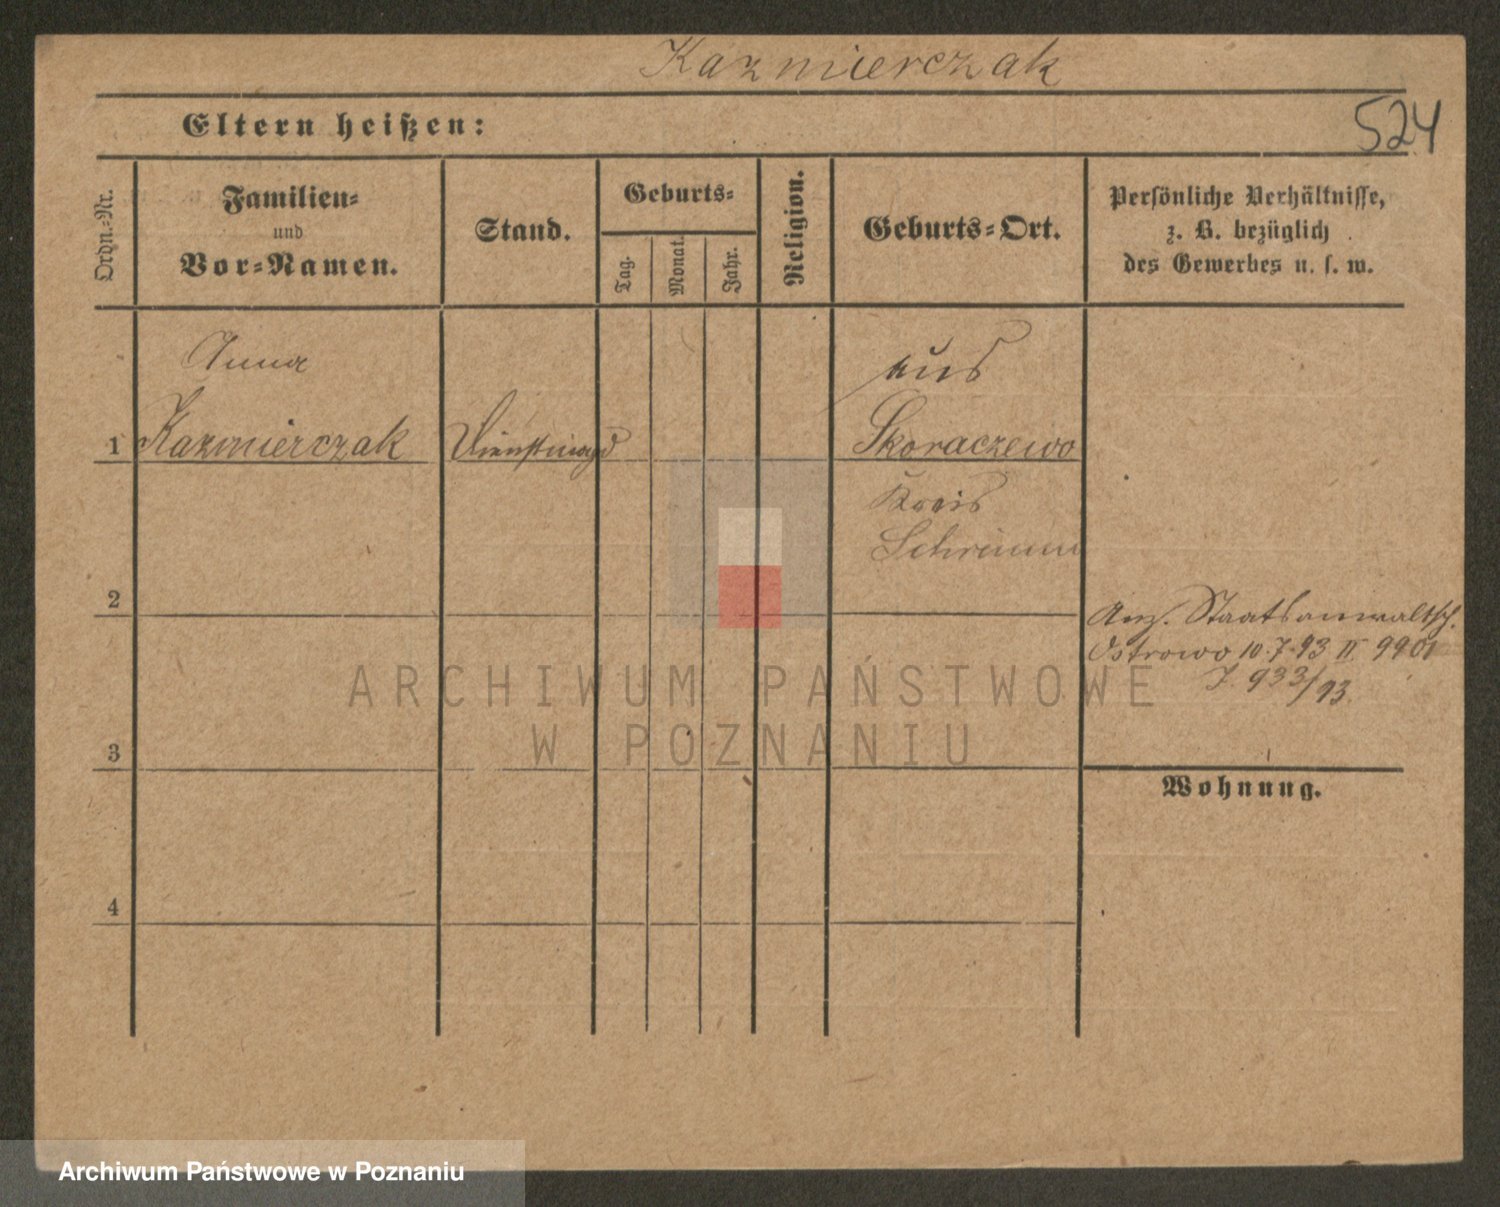 Kazmierczak
524
Eltern heißen:
Ordn.-Nr.
Familien-
und
Vor-Namen.
Stand.
Geburts-
Tag.
Monat.
Jahr.
Religion.
Geburts-Ort.
Persönliche Verhältnisse,
z. B. bezüglich
des Gewerbes u. s. w.
Anna
aus
1 Kazmierczak Dienstmagd Skoraczewo
Kreis
Schrimm
2
Anz. Staatsanwaltsch.
Ostrowo 10.7.93 II 9901
J. 933/93
ARCHIWUM PAŃSTWOWE
W POZNANIU
3
Wohnung.
4
Archiwum Państwowe w Poznaniu